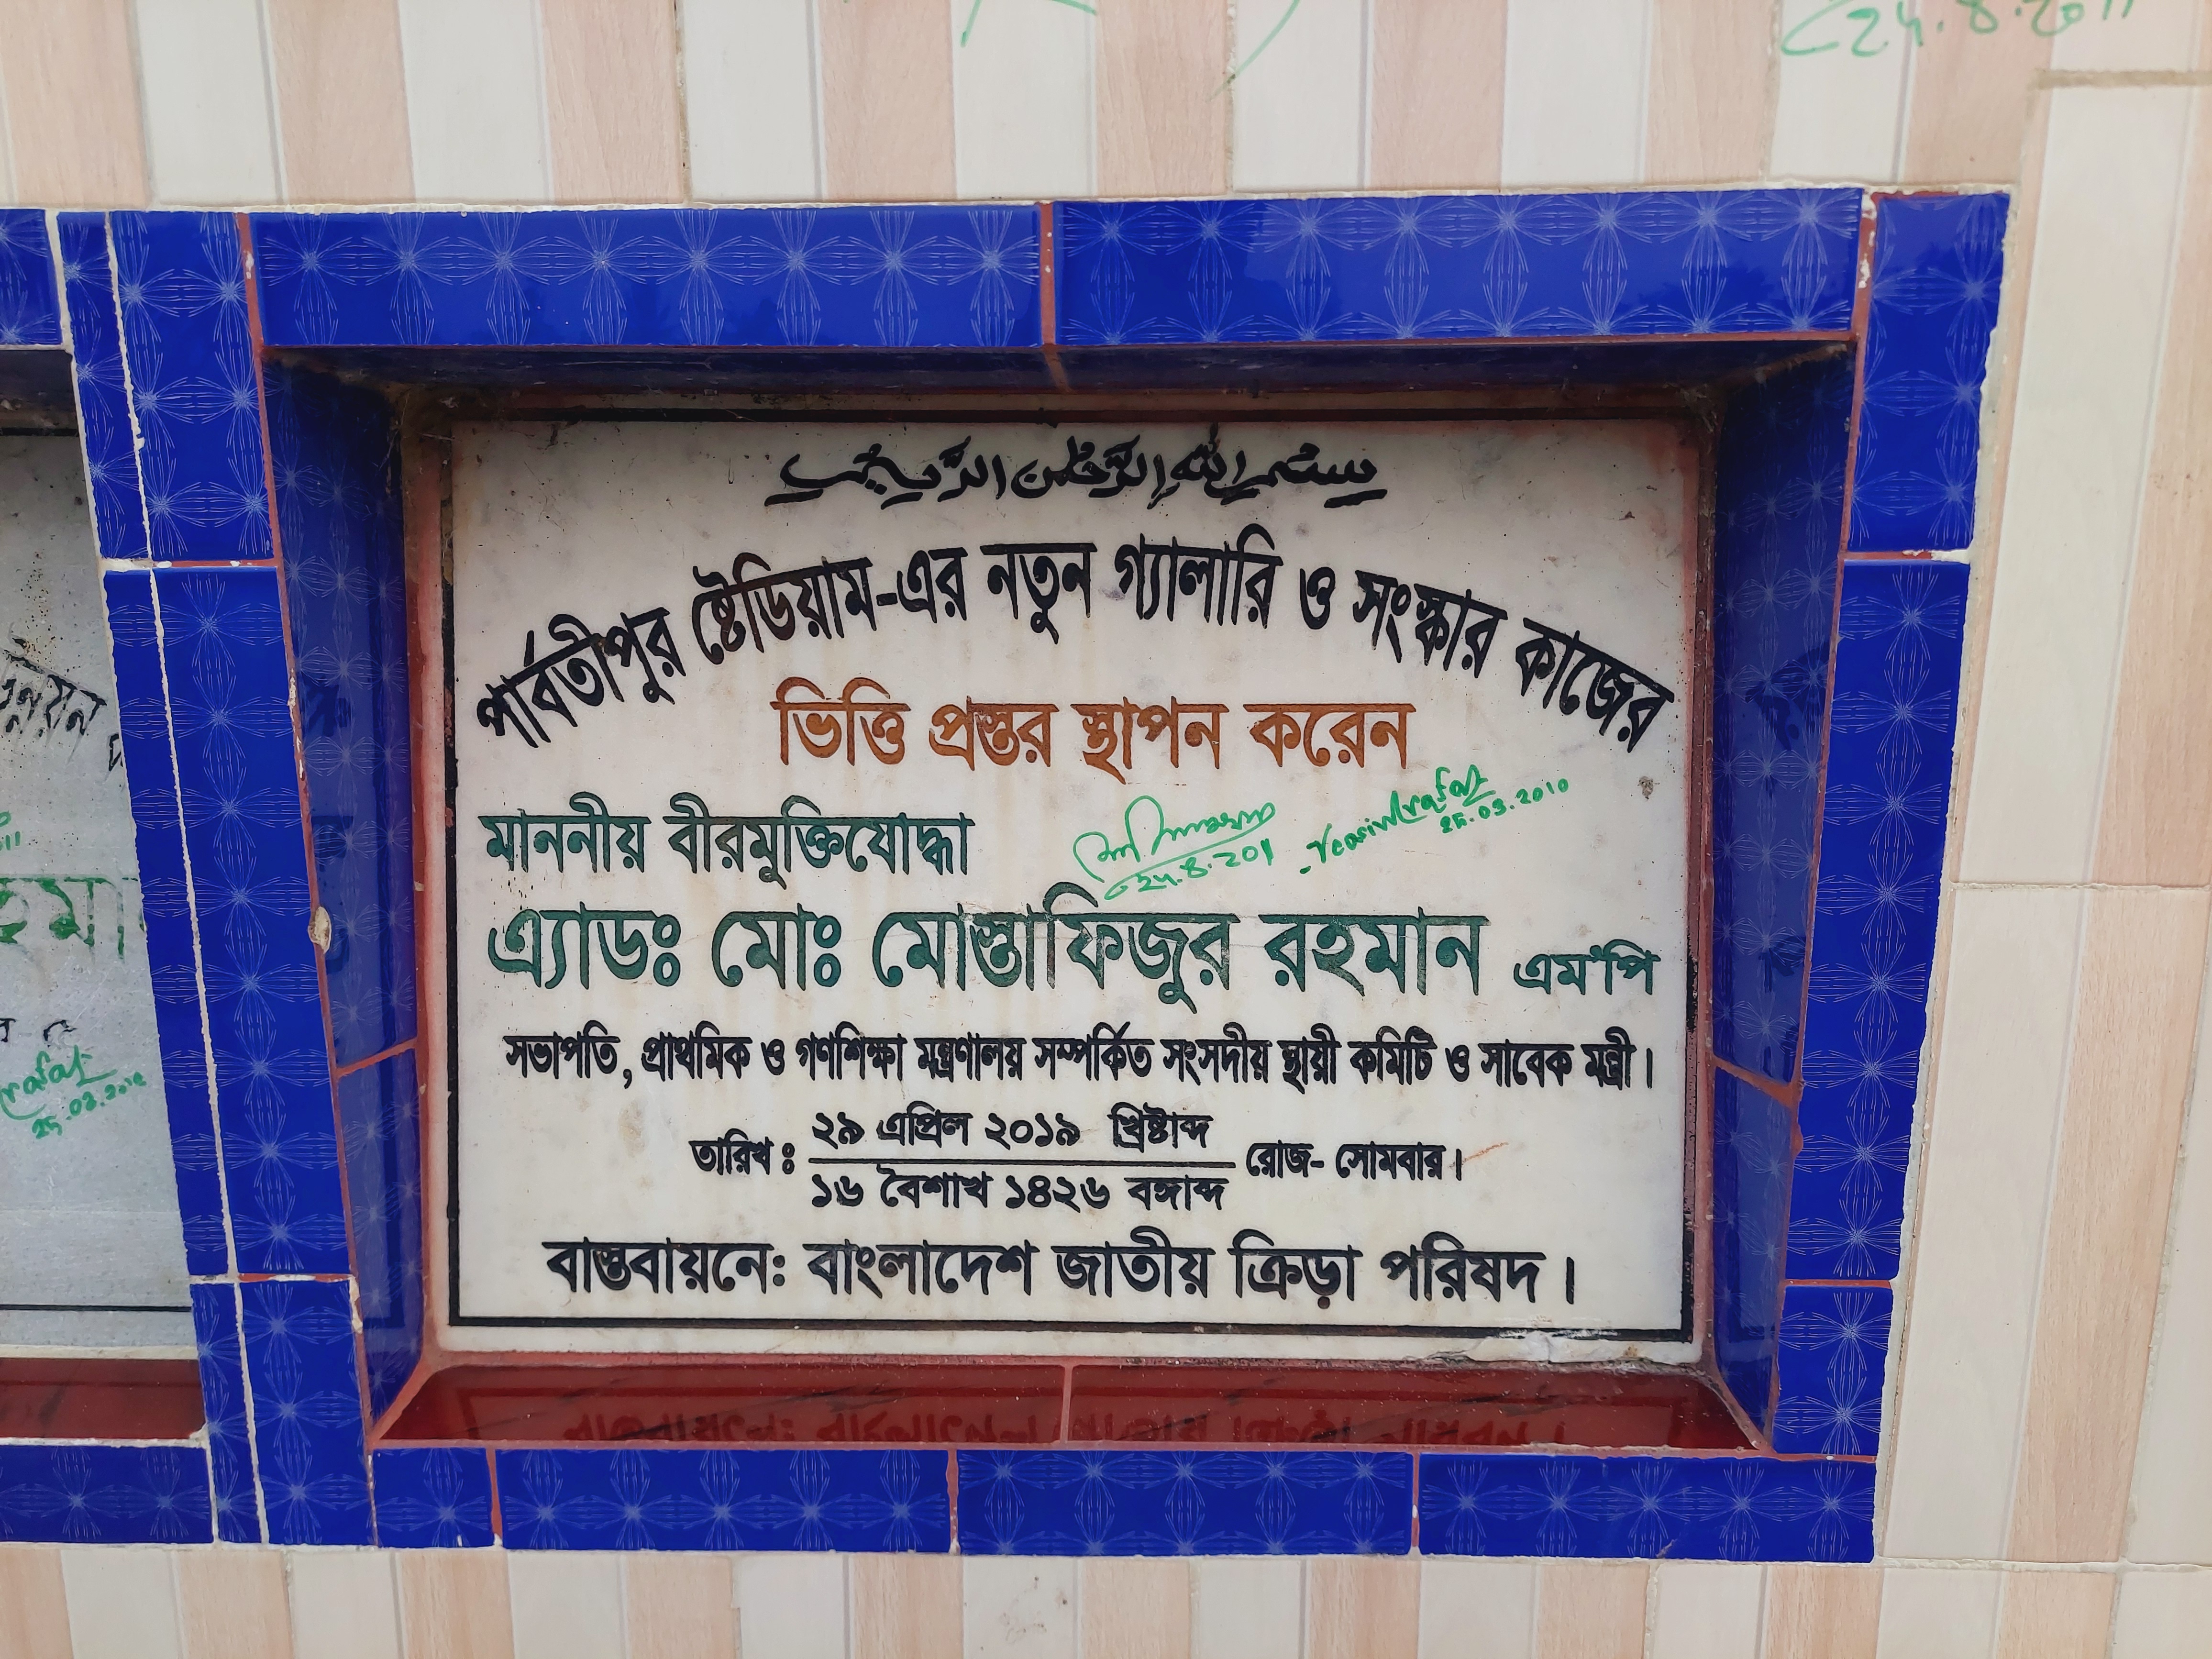 24.8.2011
بسم الله الرحمن الرحيم
পার্বতীপুর ষ্টেডিয়াম-এর নতুন গ্যালারি ও সংস্কার কাজের
ভিত্তি প্রস্তর স্থাপন করেন
মাননীয় বীরমুক্তিযোদ্ধা
24.8.201
Yeasin Arafat
25.03.2010
এ্যাডঃ মোঃ মোস্তাফিজুর রহমান এম'পি
সভাপতি, প্রাথমিক ও গণশিক্ষা মন্ত্রণালয় সম্পর্কিত সংসদীয় স্থায়ী কমিটি ও সাবেক মন্ত্রী।
তারিখ ঃ ২৯ এপ্রিল ২০১৯ খ্রিষ্টাব্দ
১৬ বৈশাখ ১৪২৬ বঙ্গাব্দ রোজ- সোমবার।
বাস্তবায়নে: বাংলাদেশ জাতীয় ক্রিড়া পরিষদ।